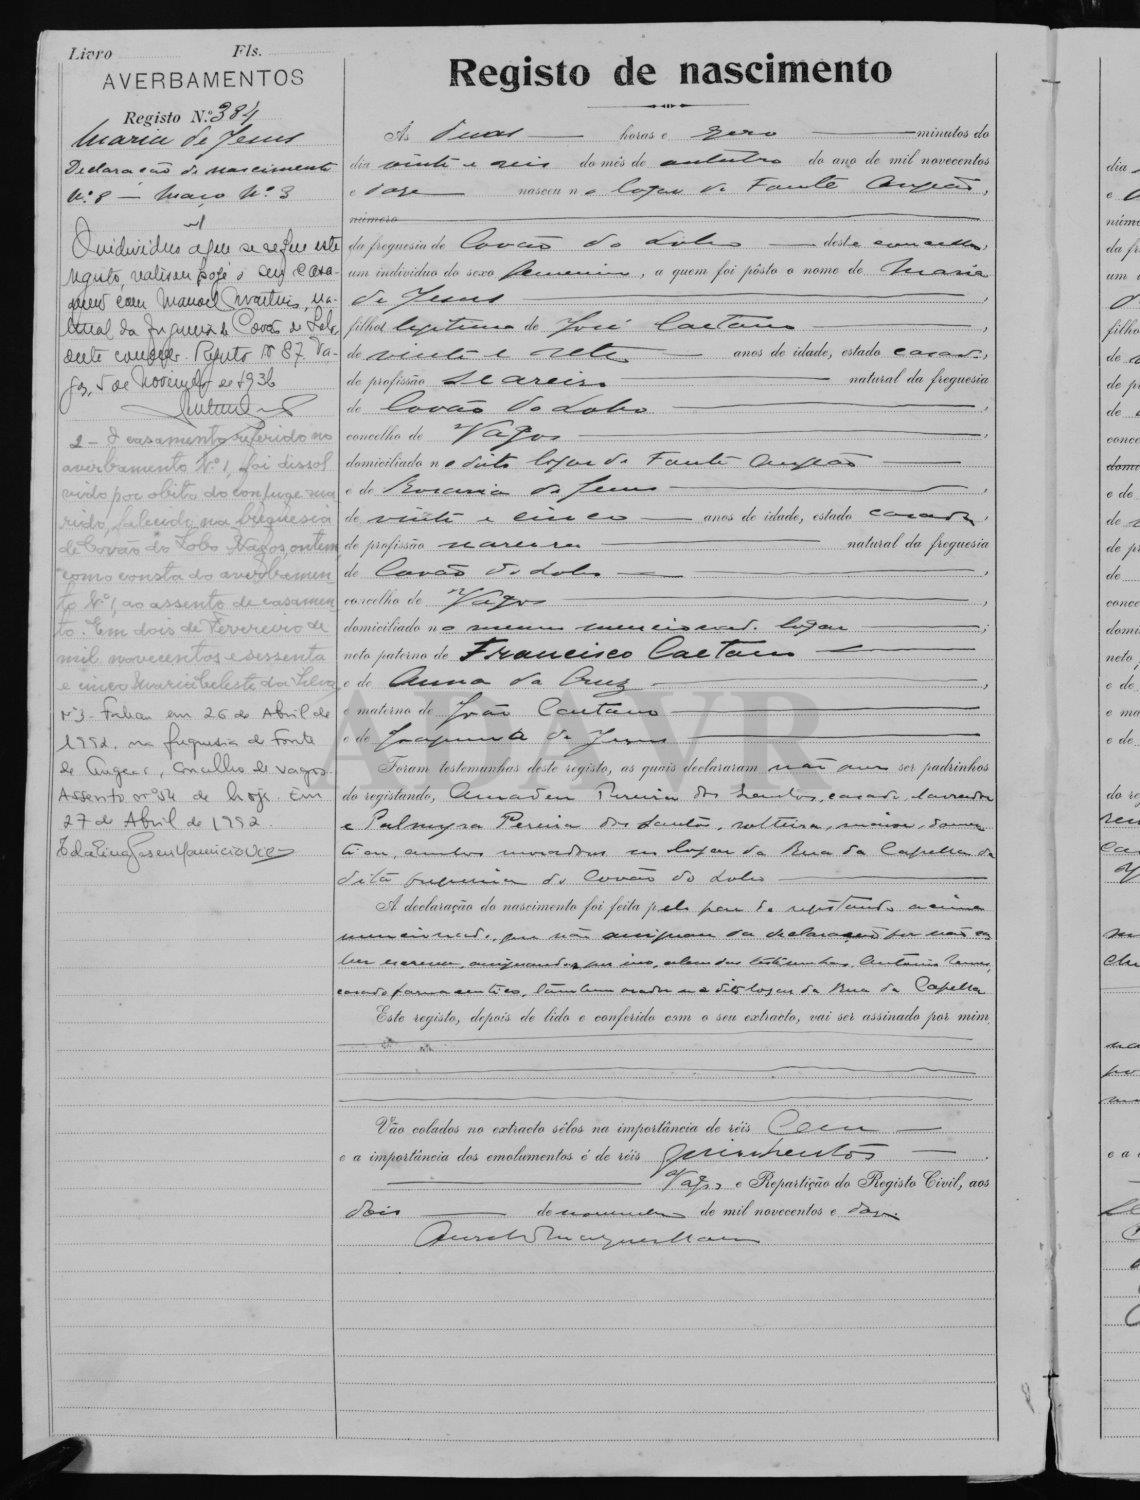 Livro Fls.
AVERBAMENTOS
Registo N.º 384
Maria de Jesus
Declaração de nascimento
N.º 8 — Maço N.º 3
Nº1
O individuo a que se refere este
registo, realisou hoje o seu casa-
mento com Manoel Martins, na-
tural da freguesia de Covão do Lobo,
deste concelho. Registo Nº 87. Va-
gos, 5 de Novembro de 1936
2 – O casamento referido no
averbamento N.º 1, foi dissol
vido por obito do conjuge ma
rido, falecido na freguesia
de Covão do Lobo Vagos, ontem,
como consta do averbamen
to N.º 1, ao assento de casamen
to. Em dois de Fevereiro de
mil novecentos e sessenta
e cinco Maria Celeste da Silva
Nº 3 - Faleceu em 26 de Abril de
1992, na freguesia de Fonte
de Angeão, concelho de Vagos.
Assento nº 54 de hoje. Em
27 de Abril de 1992.
Registo de nascimento
Ás duas — horas e zero — minutos do
dia vinte e seis do mês de outubro do ano de mil novecentos
e doze — nasceu no logar de Fonte Angeão,
número
da freguesia de Covão do Lobo — deste concelho,
um individuo do sexo femenino, a quem foi pôsto o nome de Maria
de Jesus —,
filha legitima de José Caetano —
de vinte e sete — anos de idade, estado casado,
de profissão seareiro — natural da freguesia
de Covão do Lobo —
concelho de Vagos —,
domiciliado no dito logar de Fonte Angeão —
e de Rosaria de Jesus —,
de vinte e cinco — anos de idade, estado casada,
de profissão seareira — natural da freguesia
de Covão do Lobo —,
concelho de Vagos —,
domiciliado no mesmo mencionado logar —;
neto paterno de Francisco Caetano —
e de Anna da Cruz —,
e materno de João Caetano —
e de Joaquina de Jesus —
Foram testemunhas deste registo, as quais declararam não ser padrinhos
do registando, Amadeu Pereira dos Santos, casado, lavrador
e Palmyra Pereira dos Santos, solteira, maior, domes
tica, ambos moradores no logar da Rua da Capella da
dita freguesia de Covão do Lobo —
A declaração do nascimento foi feita pelo pae do registando acima
mencionado, que não assignou da declaração por não sa
ber escrever, assignando além das testemunhas, Antonio
casado farmaceutico, tambem morador no dito logar da Rua da Capella
Este registo, depois de lido e conferido com o seu extracto, vai ser assinado por mim
Vão colados no extracto sêlos na importância de réis Cem —
e a importância dos emolumentos é de réis quinhentos —.
Vagos e Repartição do Registo Civil, aos
dois — de novembro de mil novecentos e doze.
ADAVR